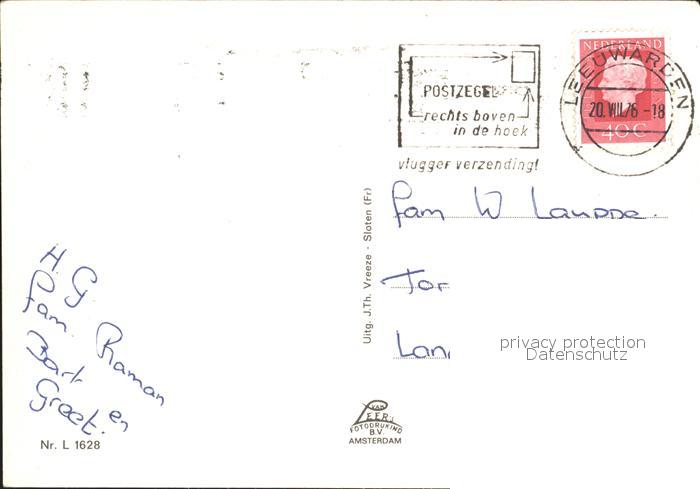 POSTZEGEL
rechts boven
in de hoek
vlugger verzending!
NEDERLAND
40 C
LEEUWARDEN
20. VIII. 76 - 18
Fam W Lauppe.
Tor
Lan
privacy protection
Datenschutz
H G
Fam. Raman
Bart en
Greet.
Uitg. J.Th. Vreeze - Sloten (Fr)
VAN
LEER'S
FOTODRUKIND
B.V.
AMSTERDAM
Nr. L 1628